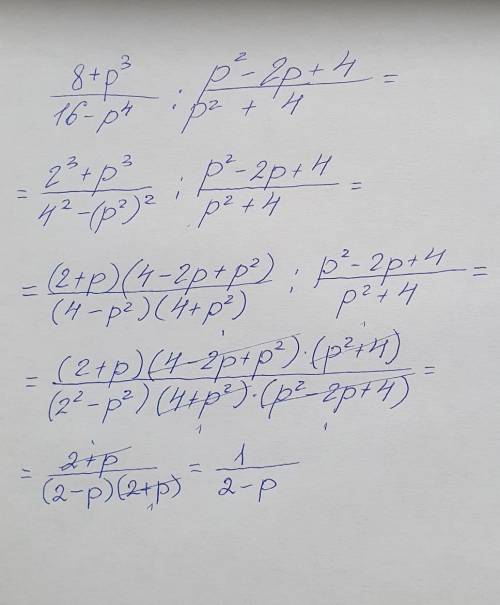 (8+p³)/(16-p⁴) : (p²-2p+4)/(p²+4) =
= (2³+p³)/(4²-(p²)²) : (p²-2p+4)/(p²+4) =
= (2+p)(4-2p+p²)/(4-p²)(4+p²) : (p²-2p+4)/(p²+4) =
= (2+p)(4-2p+p²)·(p²+4)/(2²-p²)(4+p²)·(p²-2p+4) =
= (2+p)/(2-p)(2+p) = 1/(2-p)